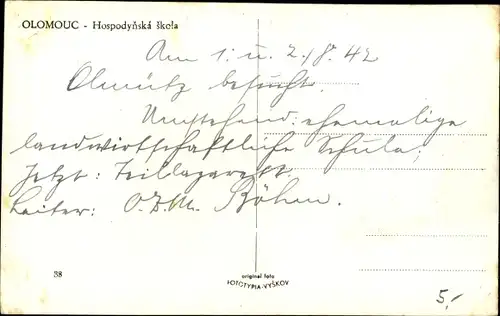 OLOMOUC - Hospodyňská škola
Am 1. u. 2./8. 42
Olmütz besucht.
Umstehend: ehemalige
landwirtschaftliche Schule;
Jetzt: Teillazarett.
Leiter: O.Z.M. Böhm.
38
original foto
FOTOTYPIA-VYŠKOV
5,-